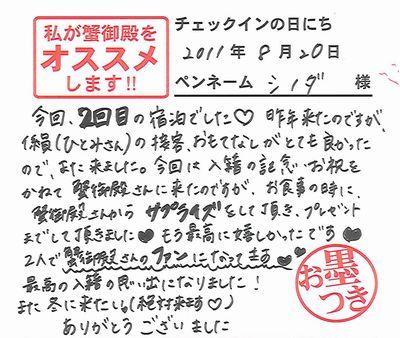 私が蟹御殿を
オススメ
します!!
チェックインの日にち
2011年 8月20日
ペンネーム シノダ 様
今回、2回目の宿泊でした♡ 昨年来たのですが、
係員(ひとみさん)の接客、おもてなしがとても良かった
ので、また来ました。今回は入籍の記念・お祝を
かねて蟹御殿さんに来たのですが、お食事の時に、
蟹御殿さんから サプライズをして頂き、プレゼント
までして頂きました♥ もう最高に嬉しかったです♥
2人で蟹御殿さんのファンになってます♥
最高の入籍の思い出になりました!
また冬に来たいも(絶対来ます♡)
ありがとうございました
お墨つき